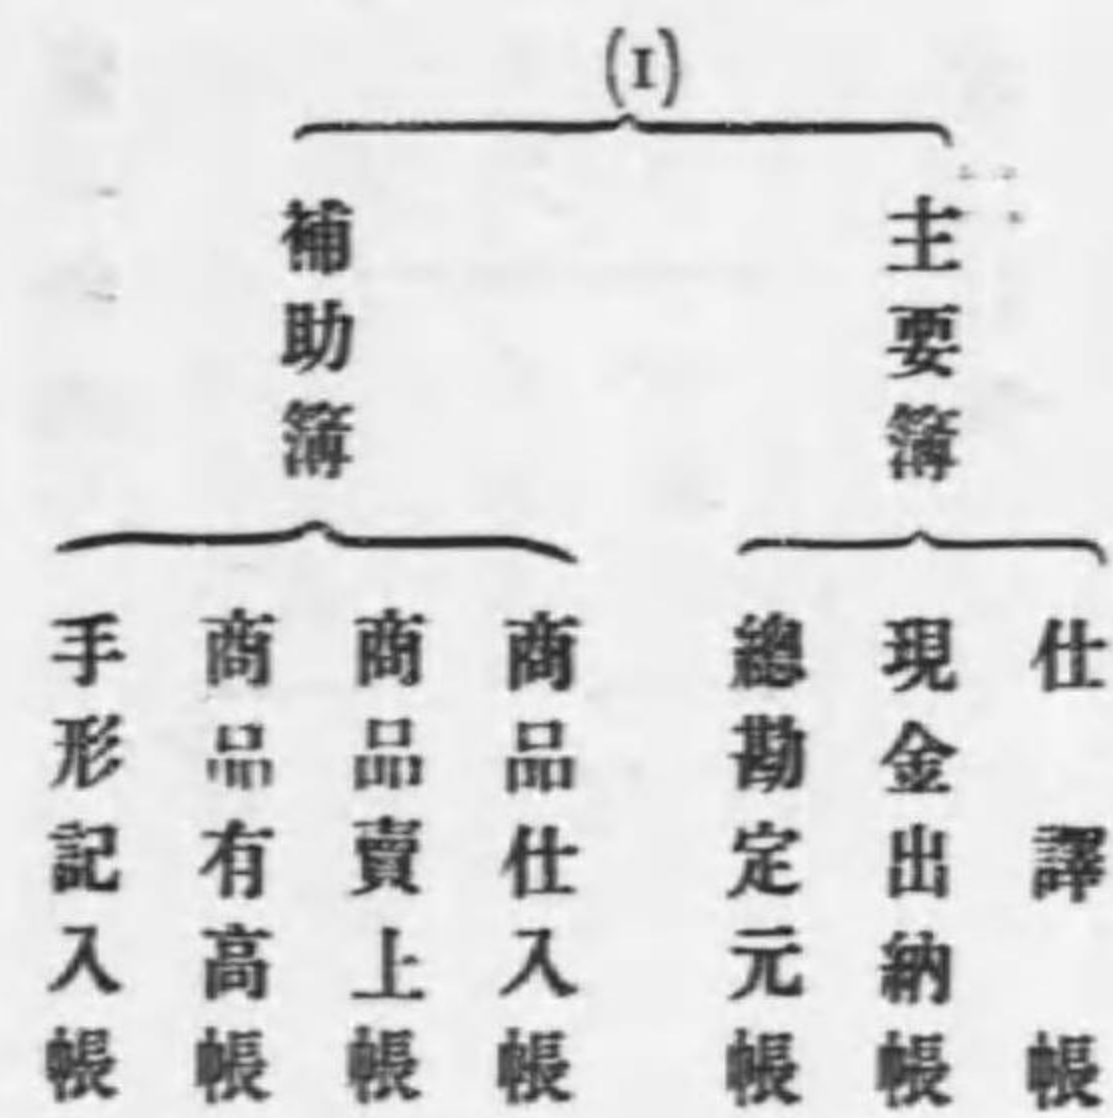 (I)
主要簿
仕譯帳
現金出納帳
總勘定元帳
補助簿
商品仕入帳
商品賣上帳
商品有高帳
手形記入帳